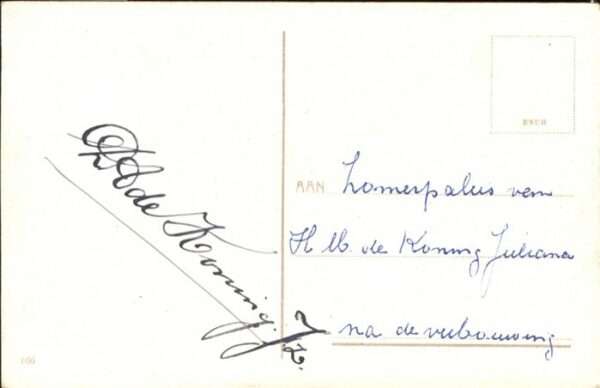 de Koning. Jz.
ENUH
AAN Zomerpaleis van
H M. de Koning Juliana
na de verbouwing